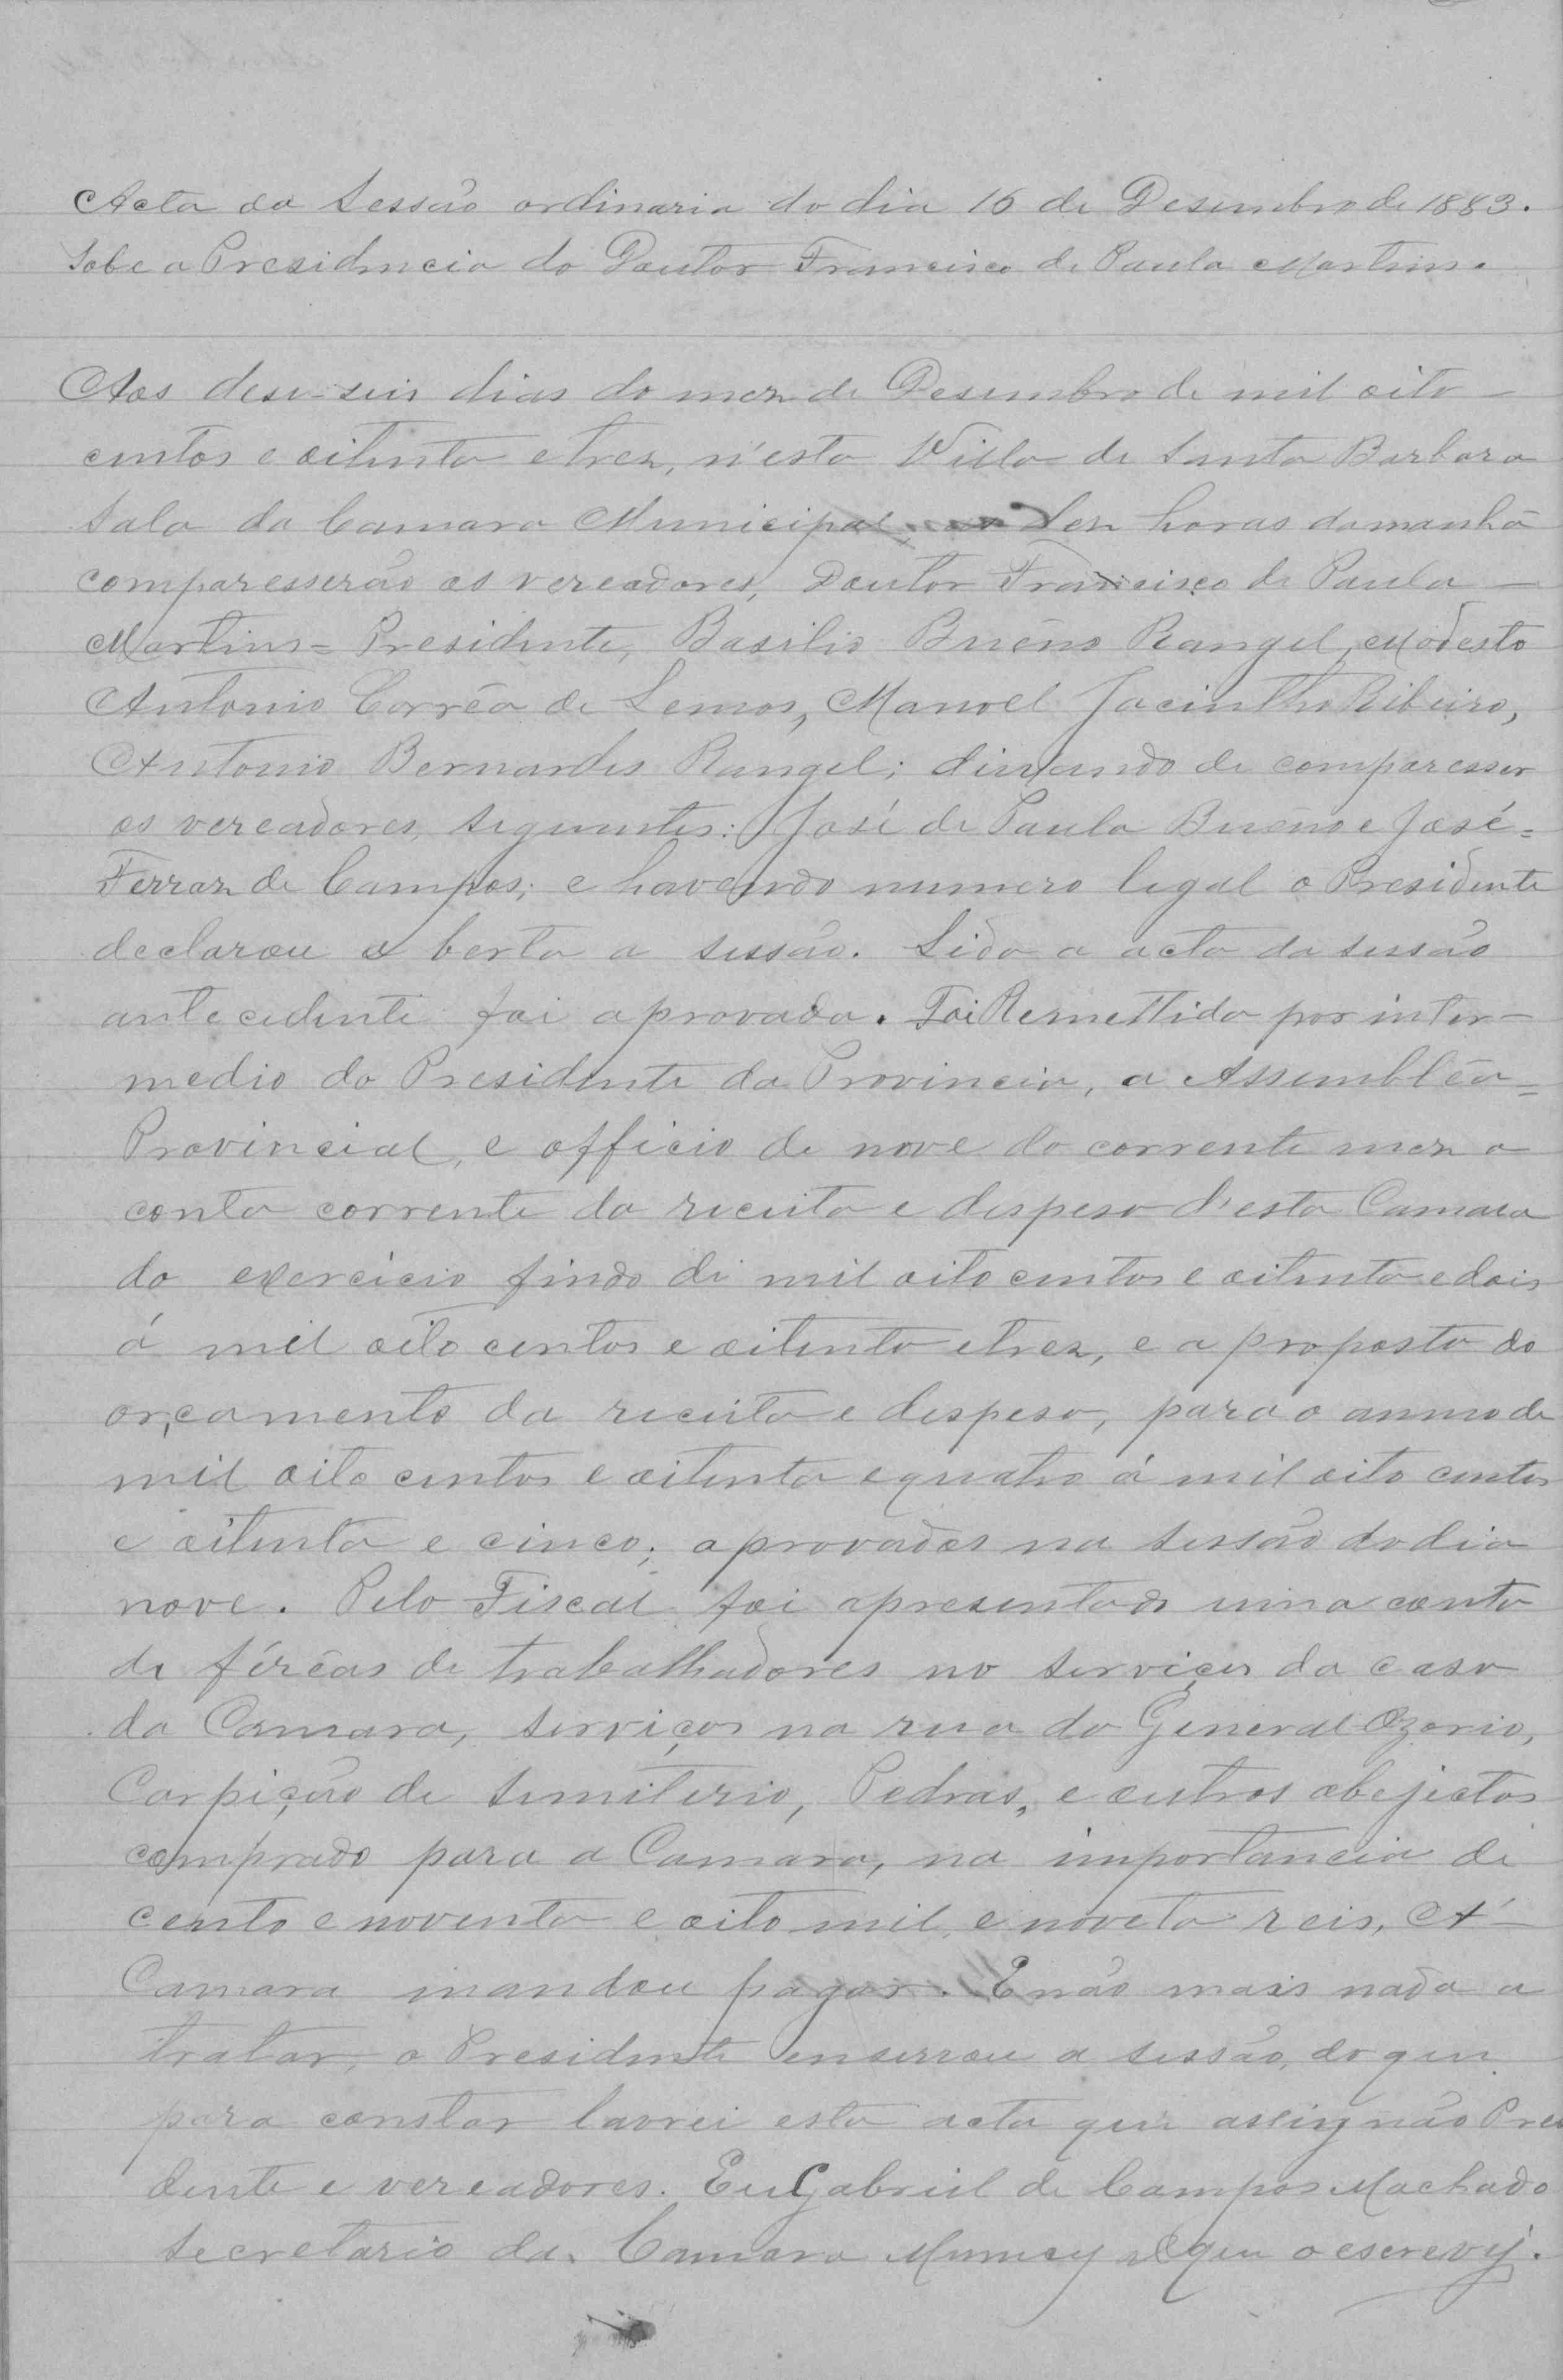 Acta da Sessão ordinaria do dia 16 de Desembro de 1883.
Sobe a Presidencia do Doutor Francisco de Paula Martins.
Aos dese-seis dias do mez de Desembro de mil oito
centos e oitenta e trez, n'esta Villa de Santa Barbara
Sala da Camara Municipal, as dez horas da manhã
comparesserão os vereadores, Doutor Francisco de Paula
Martins = Presidente, Basilio Bueno Rangel, Modesto
Antonio Corrêa de Lemos, Manoel Jacintho Ribeiro,
Antonio Bernardes Rangel; dixando de comparesser
os vereadores, seguintes: José de Paula Bueno e José =
Ferraz de Campos; e havendo numero legal o Presidente
declarou a berta a sessão. Lida a acta da sessão
antecedente foi aprovada. Foi Remettida por inter-
medio do Presidente da Provincia, a Assembléa =
Provincial, e officio de nove do corrente mez a
conta corrente da receita e despesa d'esta Camara
do exercicio findo de mil oito centos e oitenta e dois
á mil oito centos e oitenta e trez, e a proposta do
orçamento da receita e despesa, para o anno de
mil oito centos e oitenta e quatro á mil oito centos
e oitenta e cinco; aprovados na sessão do dia
nove. Pelo Fiscal foi apresentado uma conta
de féréas de trabalhadores no serviços da casa
da Camara, serviços na rua do General Ozorio,
Carpição de semiterio, Pedras, e outros objectos
comprado para a Camara, na importancia de
cento e noventa e oito mil e noveta reis, A
Camara mandou pagar. E não mais nada a
tratar, o Presidente enserrou a sessão, do que
para constar lavrei esta acta que assignão Presi
dente e vereadores. Eu Gabriel de Campos Machado
Secretario da Camara que o escrevy.